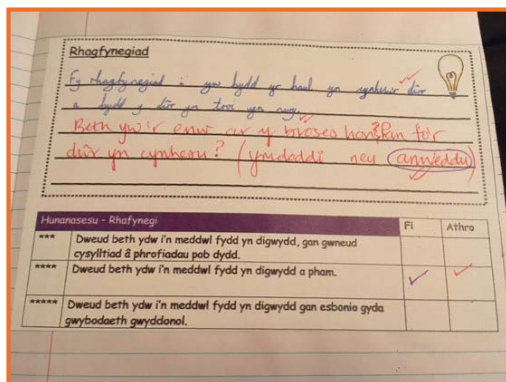 Rhagfynegiad
Fy rhagfynegiad i yw bydd yr haul yn cynhesu'r dŵr
a bydd y dŵr yn troi yn
Beth yw'r enw ar y broses hon? Pan fo'r
dŵr yn cynhesu? (ymdoddi neu anweddu)
Hunanasesu - Rhafynegi
Fi
Athro
*** Dweud beth ydw i'n meddwl fydd yn digwydd, gan gwneud
cysylltiad â phrofiadau pob dydd.
**** Dweud beth ydw i'n meddwl fydd yn digwydd a pham.
***** Dweud beth ydw i'n meddwl fydd yn digwydd gan esbonio gyda
gwybodaeth gwyddonol.